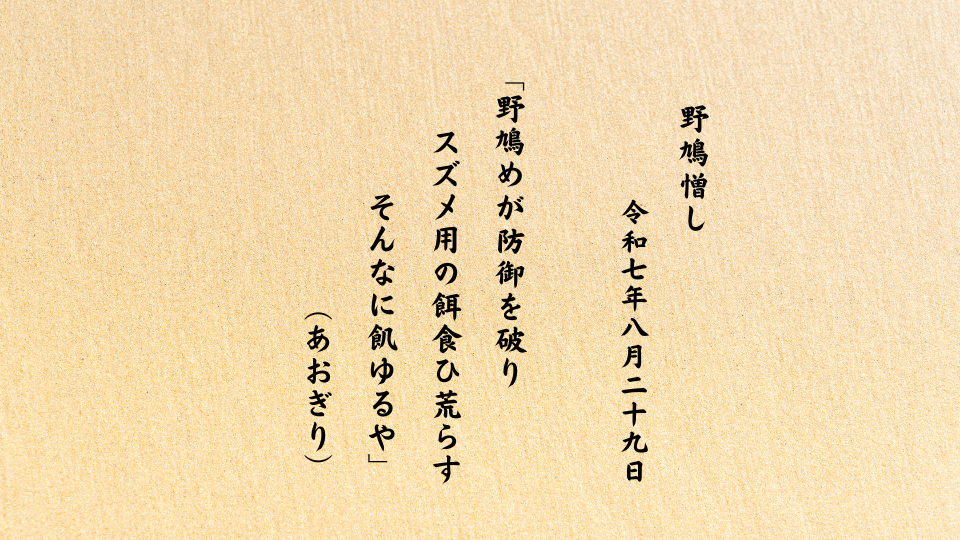 野鳩憎し
令和七年八月二十九日
「野鳩めが防御を破り
スズメ用の餌食ひ荒らす
そんなに飢ゆるや」
（あおぎり）